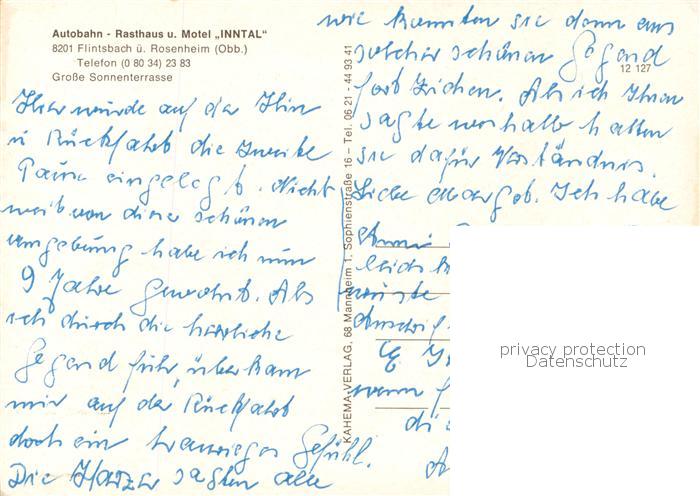 Autobahn - Rasthaus u. Motel „INNTAL"
8201 Flintsbach ü. Rosenheim (Obb.)
Telefon (0 80 34) 23 83
Große Sonnenterrasse
Hier wurde auf der Hin
u Rückfahrt die zweite
Pause eingelegt. Nicht
weit von dieser schönen
umgebung habe ich nun
9 Jahre gewohnt. Als
ich durch die herrliche
Gegend fuhr, überkam
mir auf der Rückfahrt
doch ein trauriges Gefühl.
Die Harzer sagten alle
KAHEMA-VERLAG, 68 Mannheim 1, Sophienstraße 16 – Tel. 06 21 - 44 93 41
12 127
wie konnten sie denn aus
solcher schönen Gegend
fort ziehen. Als ich Ihnen
sagte weshalb hatten
sie dafür Verständnis.
Liebe Margot. Ich habe
leid
wußte
Anschrif
wenn
di
privacy protection
Datenschutz